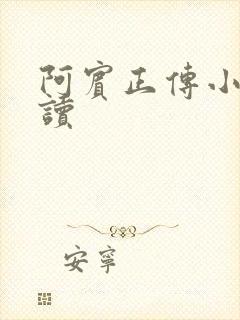 阿賓正傳小
讀
安寧